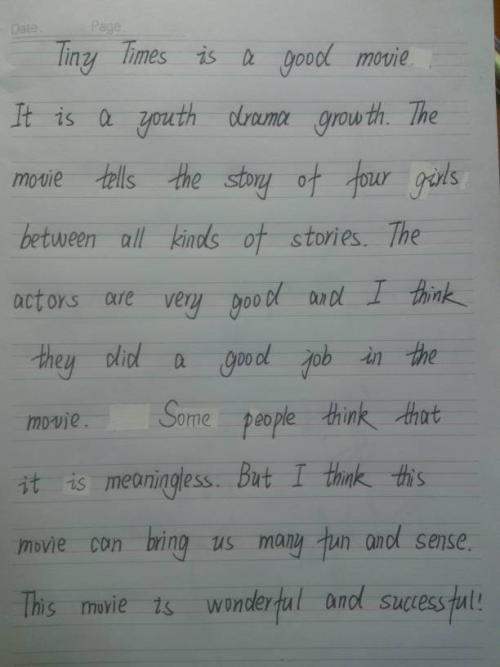 Date. Page.
Tiny Times is a good movie.
It is a youth drama growth. The
movie tells the story of four girls
between all kinds of stories. The
actors are very good and I think
they did a good job in the
movie. Some people think that
it is meaningless. But I think this
movie can bring us many fun and sense.
This movie is wonderful and successful!